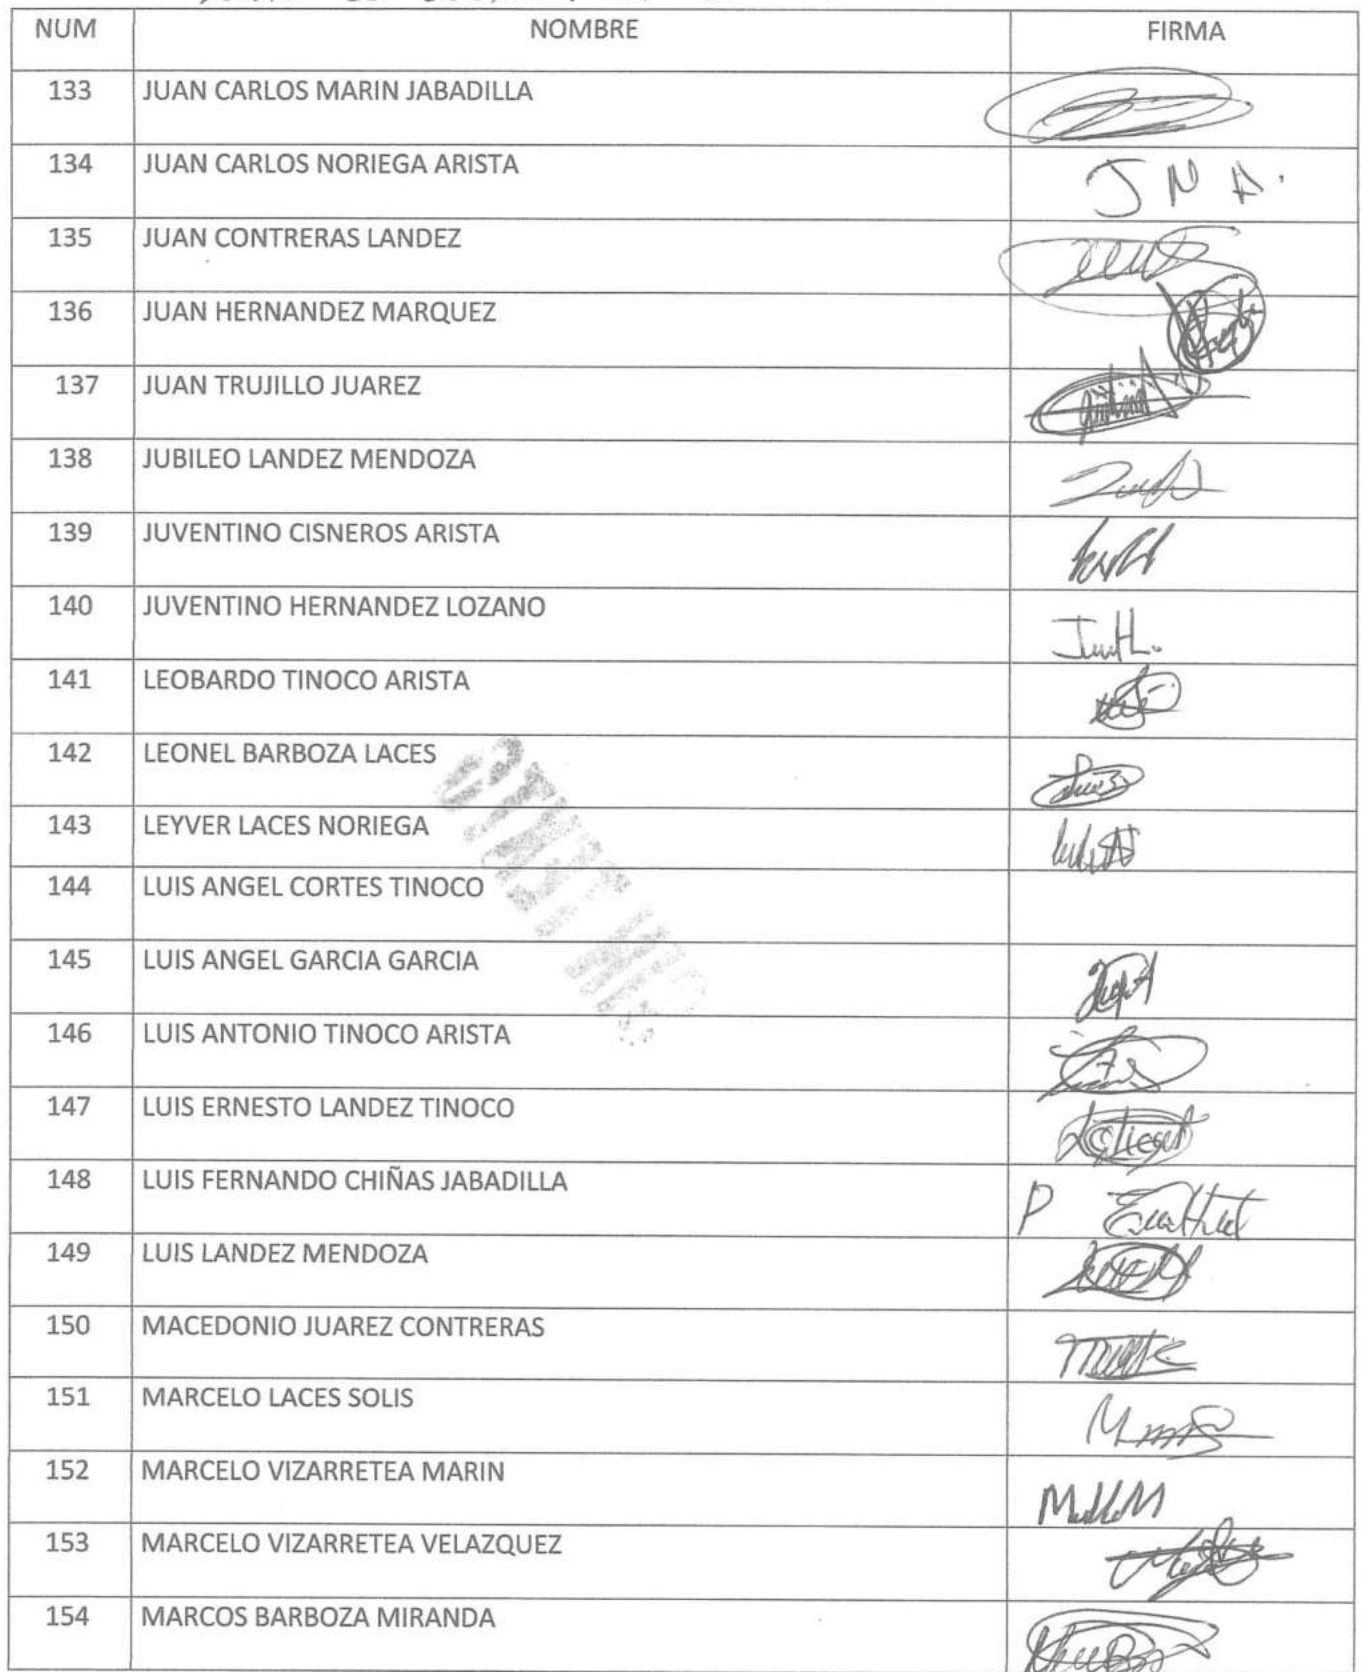 NUM NOMBRE FIRMA
133 JUAN CARLOS MARIN JABADILLA
134 JUAN CARLOS NORIEGA ARISTA J N A.
135 JUAN CONTRERAS LANDEZ
136 JUAN HERNANDEZ MARQUEZ
137 JUAN TRUJILLO JUAREZ
138 JUBILEO LANDEZ MENDOZA
139 JUVENTINO CISNEROS ARISTA
140 JUVENTINO HERNANDEZ LOZANO
141 LEOBARDO TINOCO ARISTA
142 LEONEL BARBOZA LACES
143 LEYVER LACES NORIEGA
144 LUIS ANGEL CORTES TINOCO
145 LUIS ANGEL GARCIA GARCIA
146 LUIS ANTONIO TINOCO ARISTA
147 LUIS ERNESTO LANDEZ TINOCO
148 LUIS FERNANDO CHIÑAS JABADILLA P
149 LUIS LANDEZ MENDOZA
150 MACEDONIO JUAREZ CONTRERAS
151 MARCELO LACES SOLIS
152 MARCELO VIZARRETEA MARIN
153 MARCELO VIZARRETEA VELAZQUEZ
154 MARCOS BARBOZA MIRANDA